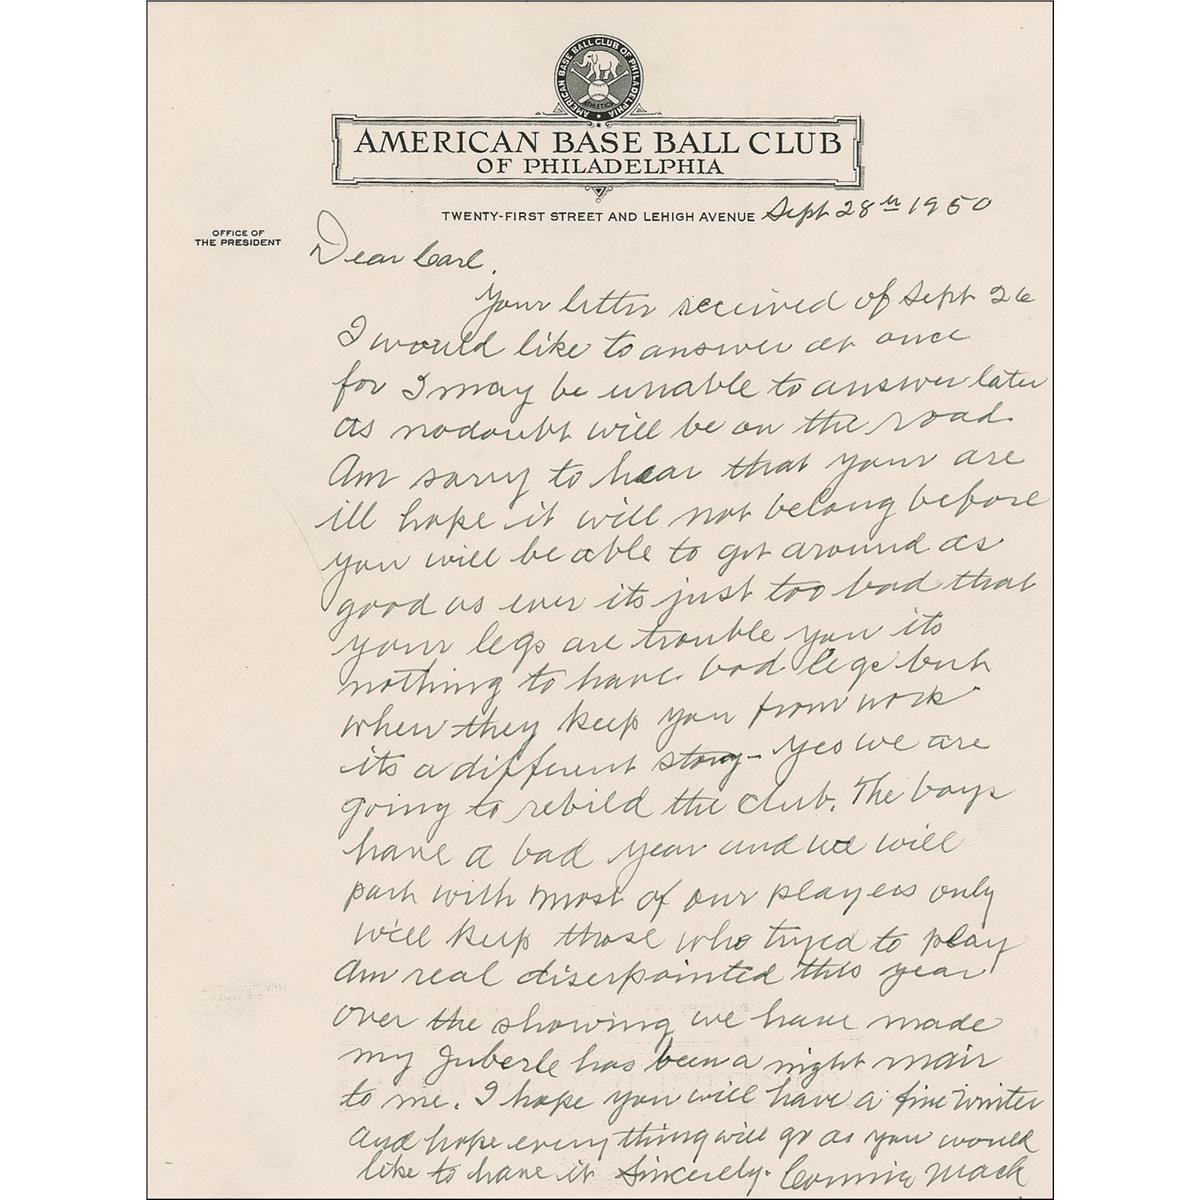 AMERICAN BASE BALL CLUB OF PHILADELPHIA
ATHLETICS
AMERICAN BASE BALL CLUB
OF PHILADELPHIA
TWENTY-FIRST STREET AND LEHIGH AVENUE Sept 28th 1950
OFFICE OF
THE PRESIDENT
Dear Carl,
Your letter received of Sept 26
I would like to answer at once
for I may be unable to answer later
as nodoubt will be on the road
Am sorry to hear that your are
ill hope it will not belong before
you will be able to get around as
good as ever its just too bad that
your legs are trouble you its
nothing to have bad legs but
when they keep you from work
its a different story - Yes we are
going to rebild the club. The boys
have a bad year and we will
part with most of our players only
will keep those who tryed to play
Am real diserpointed this year
over the showing we have made
my Juberle has been a night mair
to me. I hope you will have a fine winter
and hope every thing will go as you would
like to have it Sincerely. Connie Mack